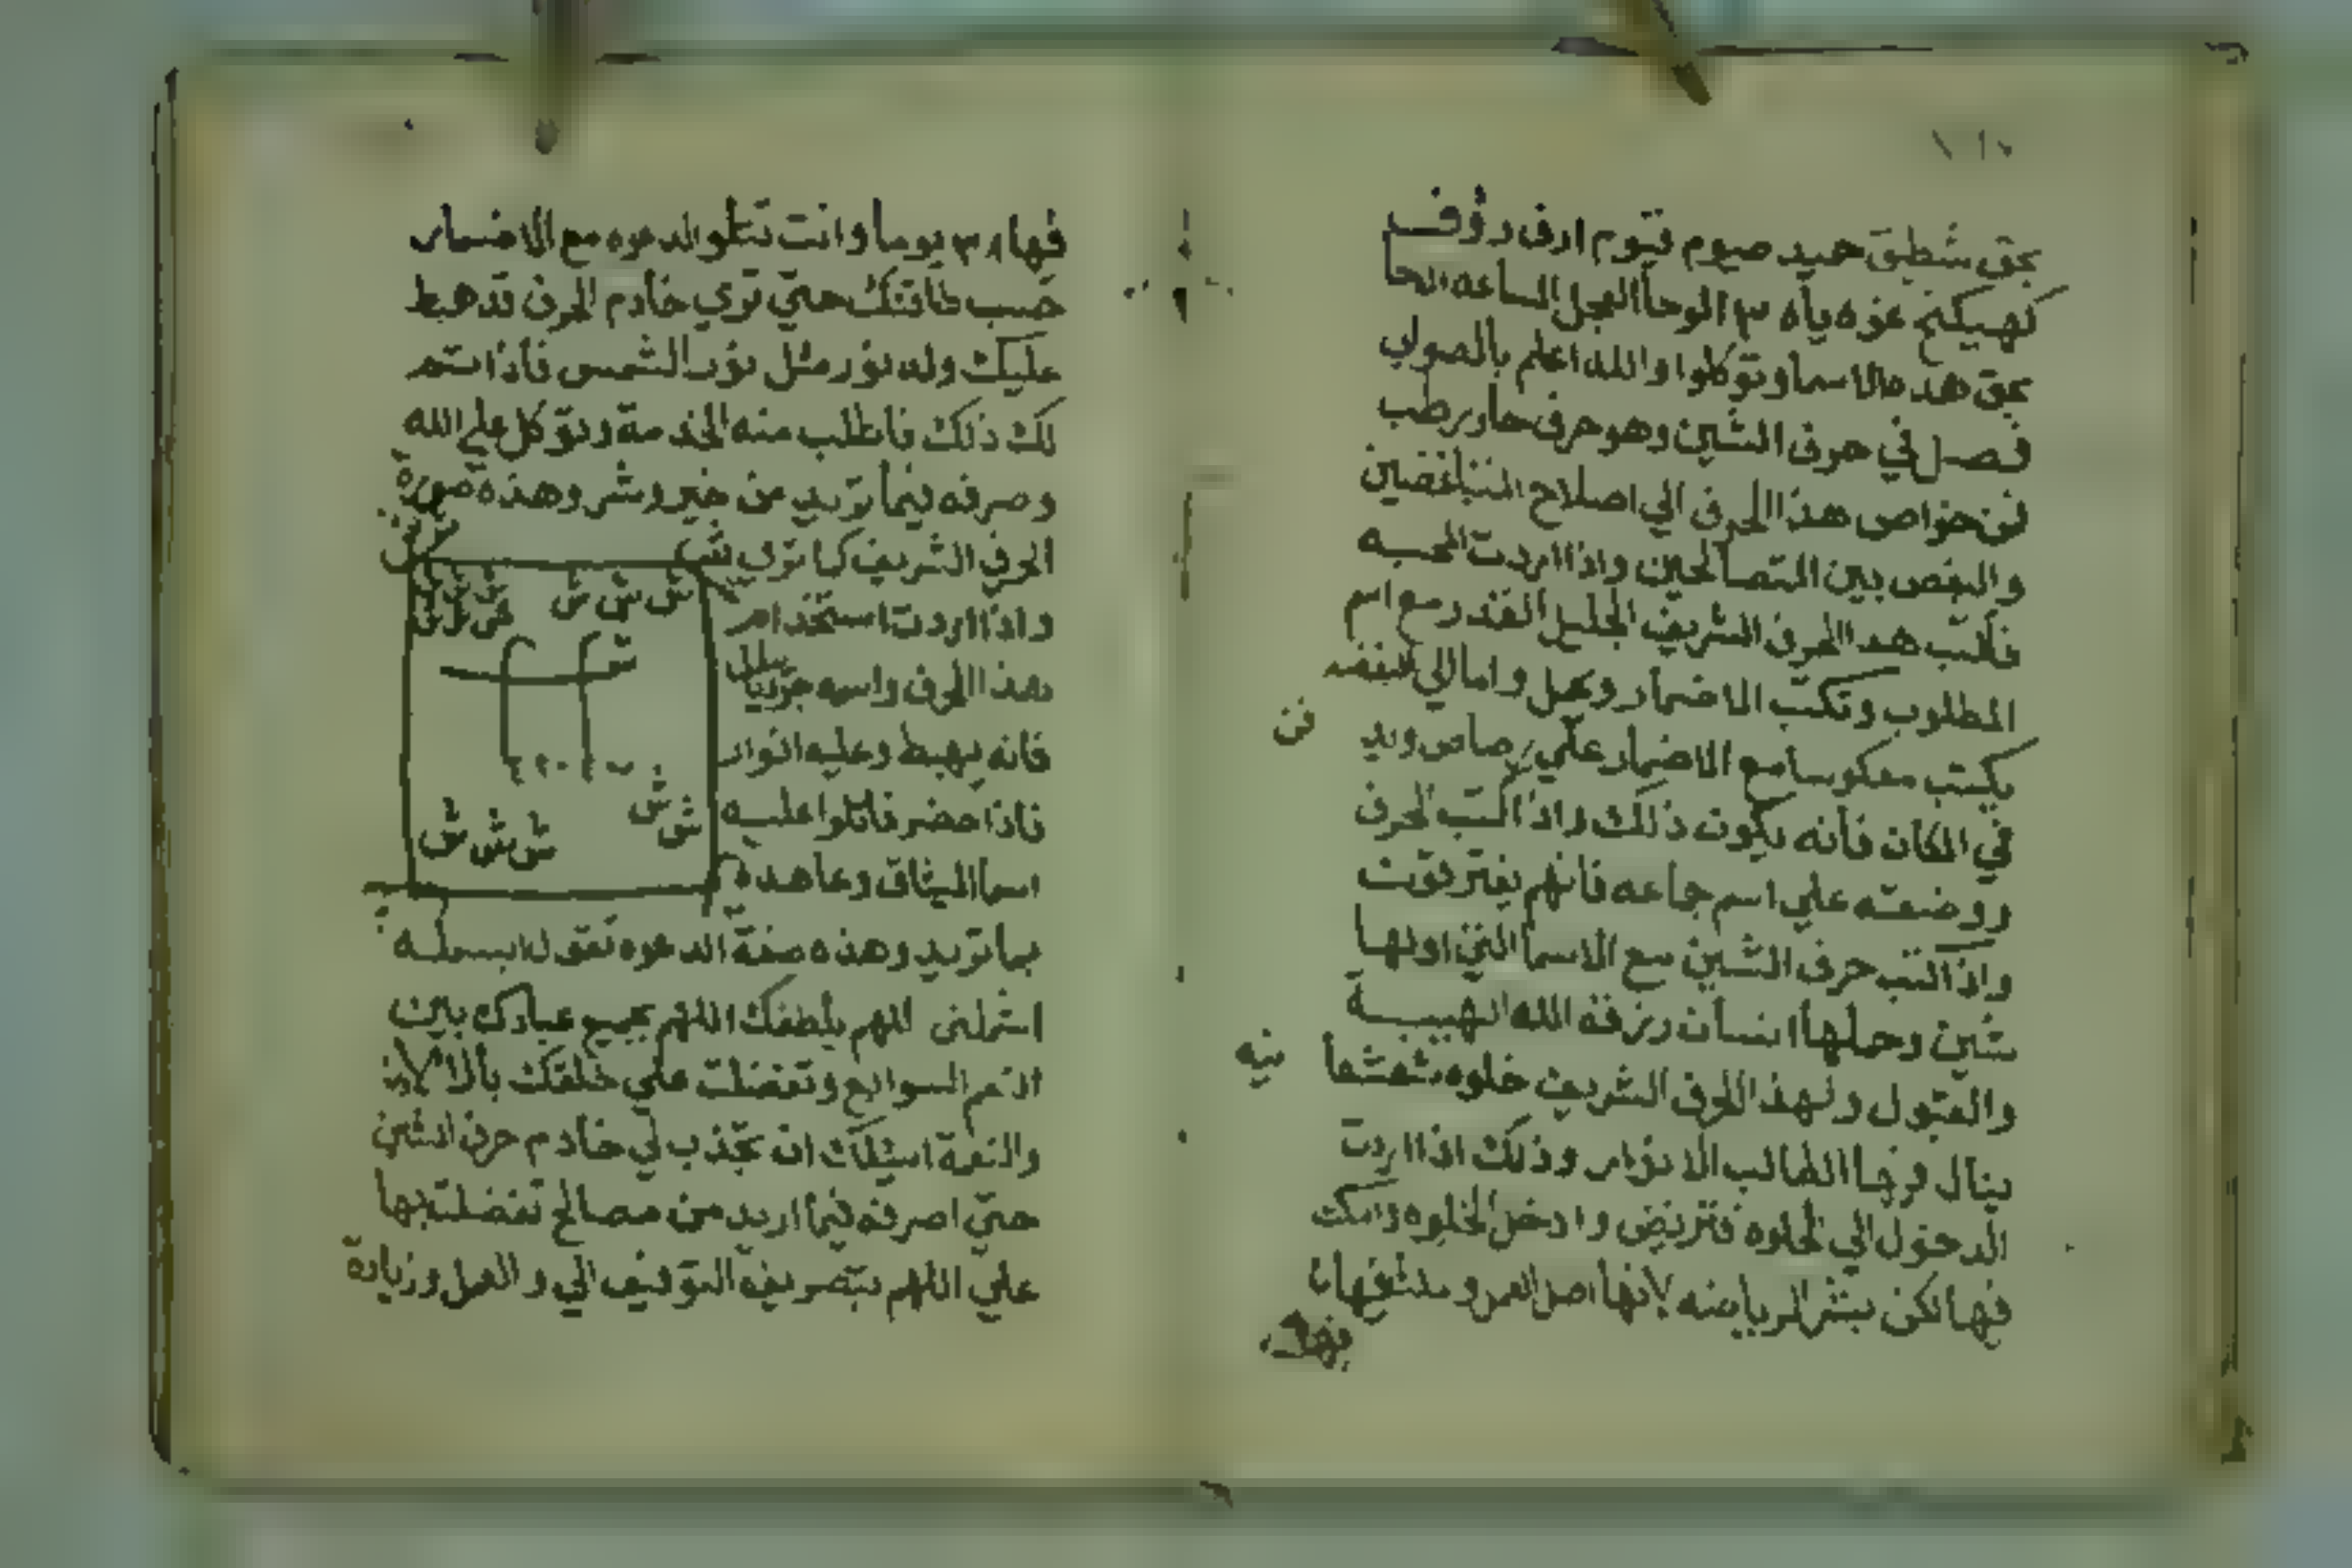 بحق شطيق حميد صيوم قيوم ارف رؤف
كهيكنج عزه ياه ٣ الوحا العجل الساعه
بحق هده الاسما وتوكلوا والله اعلم بالصواب
فصل في حرف الشين وهو حرف حار رطب
فمن خواص هذا الحرف الي اصلاح المتباغضين
والبغض بين المتصالحين واذا اردت المحبه
فاكتب هدا الحرف الشريف الجليل القدر مع اسم
المطلوب وتكتب الاضمار وعمل واما الي البغضه
يكتب معكوسا مع الاضمار علي رصاص ويد
فن
في المكان فانه يكون ذلك واذا اكتب الحرف
ووضعته علي اسم جماعه فانهم يفترقون
واذا كتب حرف الشين مع الاسما التي اولها
شين وحملها انسان رزقه الله الهيبة
والقبول ولهذا الحرف الشريف خلوه
ينال الطالب الانوار وذلك اذا اردت
الدخول الي الخلوه فتريض وادخل الخلوه وامكث
فيها لكن بشر الرياضه لانها اصل العمل
فيها ٣ يوما وانت تتلو الدعوه مع الاضمار
حسب طاقتك حتي تري خادم الحرف قد هبط
عليك وله نور مثل نور الشمس فاذا استم
لك ذلك فاطلب منه الخدمة وتوكل علي الله
وصرفه فيما تريد من خير وشر وهذه صورة
الحرف الشريف كما تري
واذا اردت استخدام
هذا الحرف واسمه
فانه يهبط وعليه انوار
فاذا حضر فاتلوا عليه
اسما الميثاق وعاهده
ش ش ش
ش ش ش
ش ش
ش ش ش
بما تريد وهذه صفة الدعوه تقول البسمله
اللهم بلطفك اللهم بجميع عبادك بين
النعم السوابغ وتفضلت علي خلقك
والنعمة اسئلك ان تجذب لي خادم حرف الشين
حتي اصرفه فيما اريد من مصالح تفضلت بها
علي اللهم بتصريف التوفيق الي والعمل وزيادة